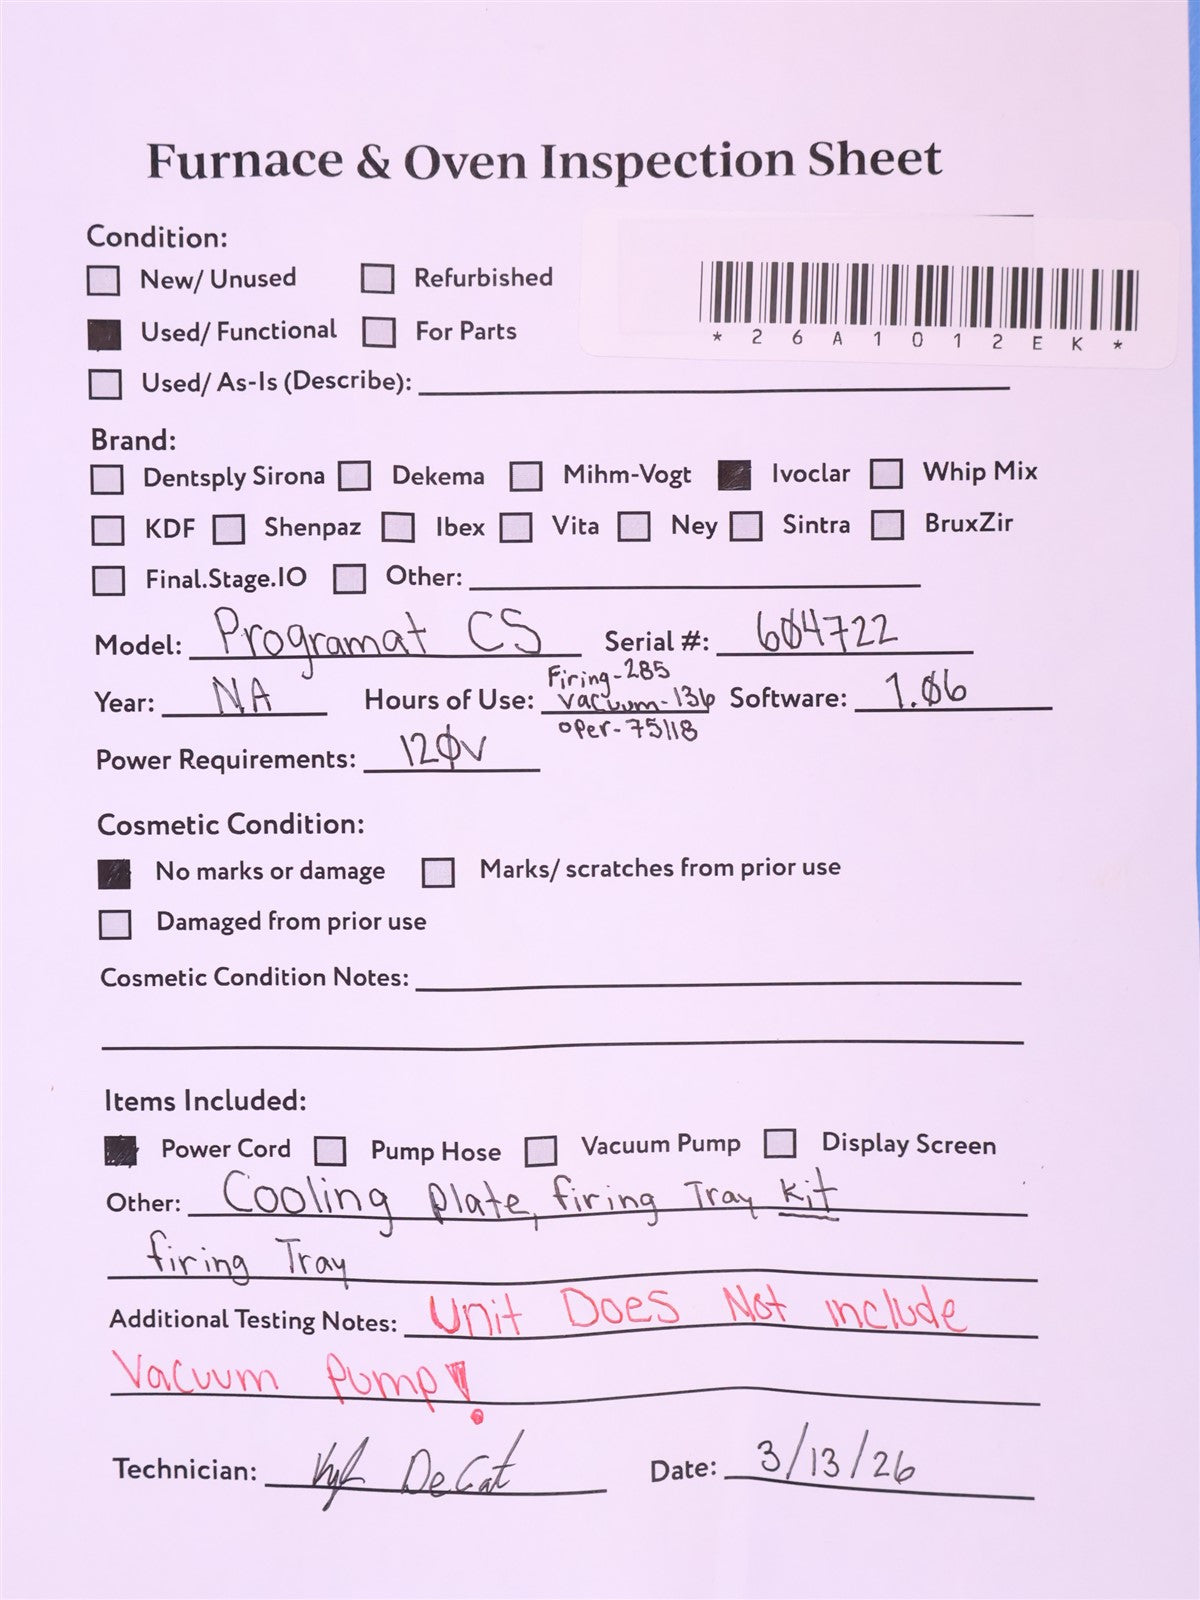 Furnace & Oven Inspection Sheet
Condition:
New/ Unused Refurbished
Used/ Functional For Parts
Used/ As-Is (Describe):
*26A1012EK*
Brand:
Dentsply Sirona Dekema Mihm-Vogt Ivoclar Whip Mix
KDF Shenpaz Ibex Vita Ney Sintra BruxZir
Final.Stage.IO Other:
Model: Programat CS Serial #: 604722
Firing-285
Year: NA Hours of Use: Vacuum-136 Software: 1.06
oper-75118
Power Requirements: 120V
Cosmetic Condition:
No marks or damage Marks/ scratches from prior use
Damaged from prior use
Cosmetic Condition Notes:
Items Included:
Power Cord Pump Hose Vacuum Pump Display Screen
Other: Cooling plate, firing Tray kit
firing Tray
Additional Testing Notes: Unit Does Not include
Vacuum Pump!
Technician: DeCat Date: 3/13/26